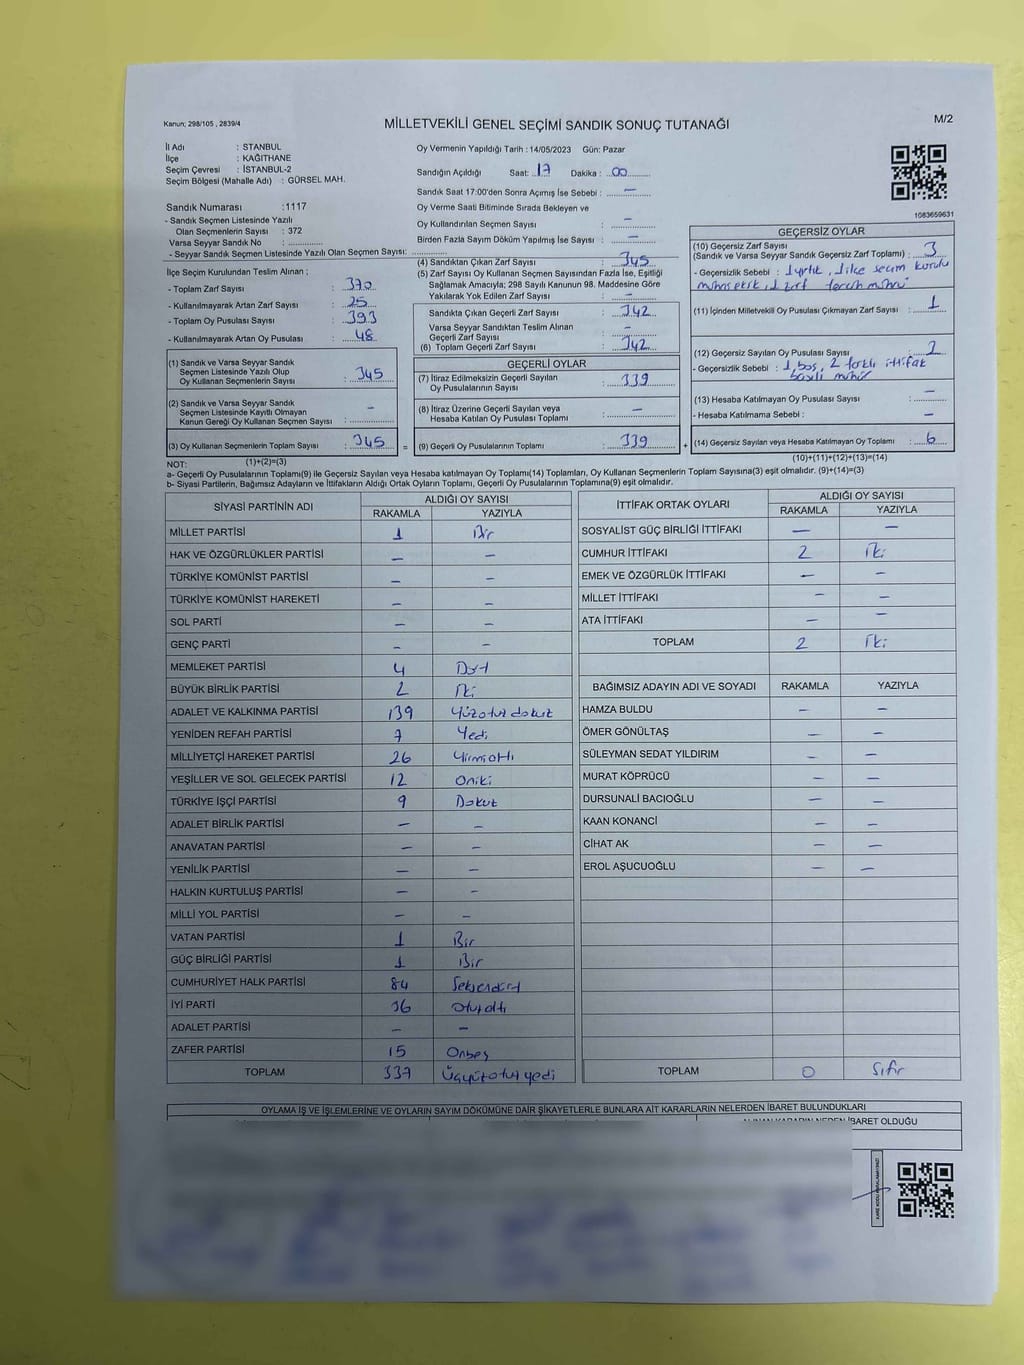 Kanun; 298/105 , 2839/4
MİLLETVEKİLİ GENEL SEÇİMİ SANDIK SONUÇ TUTANAĞI
M/2
İl Adı : STANBUL
İlçe : KAĞITHANE
Seçim Çevresi : İSTANBUL-2
Seçim Bölgesi (Mahalle Adı) : GÜRSEL MAH.
Oy Vermenin Yapıldığı Tarih : 14/05/2023 Gün: Pazar
Sandığın Açıldığı Saat: 17 Dakika : 00
Sandık Saat 17:00'den Sonra Açımış İse Sebebi : —
Oy Verme Saati Bitiminde Sırada Bekleyen ve
Oy Kullandırılan Seçmen Sayısı : —
Birden Fazla Sayım Döküm Yapılmış İse Sayısı : —
1083659631
Sandık Numarası :1117
- Sandık Seçmen Listesinde Yazılı
Olan Seçmenlerin Sayısı : 372
Varsa Seyyar Sandık No :
- Seyyar Sandık Seçmen Listesinde Yazılı Olan Seçmen Sayısı:
İlçe Seçim Kurulundan Teslim Alınan ;
- Toplam Zarf Sayısı : 370
- Kullanılmayarak Artan Zarf Sayısı : 25
- Toplam Oy Pusulası Sayısı : 393
- Kullanılmayarak Artan Oy Pusulası : 48
(1) Sandık ve Varsa Seyyar Sandık
Seçmen Listesinde Yazılı Olup
Oy Kullanan Seçmenlerin Sayısı : 345
(2) Sandık ve Varsa Seyyar Sandık
Seçmen Listesinde Kayıtlı Olmayan
Kanun Gereği Oy Kullanan Seçmen Sayısı : —
(3) Oy Kullanan Seçmenlerin Toplam Sayısı : 345
(4) Sandıktan Çıkan Zarf Sayısı : 345
(5) Zarf Sayısı Oy Kullanan Seçmen Sayısından Fazla İse, Eşitliği
Sağlamak Amacıyla; 298 Sayılı Kanunun 98. Maddesine Göre
Yakılarak Yok Edilen Zarf Sayısı : —
Sandıkta Çıkan Geçerli Zarf Sayısı : 342
Varsa Seyyar Sandıktan Teslim Alınan
Geçerli Zarf Sayısı : —
(6) Toplam Geçerli Zarf Sayısı : 342
GEÇERLİ OYLAR
(7) İtiraz Edilmeksizin Geçerli Sayılan
Oy Pusulalarının Sayısı : 339
(8) İtiraz Üzerine Geçerli Sayılan veya
Hesaba Katılan Oy Pusulası Toplamı : —
= (9) Geçerli Oy Pusulalarının Toplamı : 339 +
GEÇERSİZ OYLAR
(10) Geçersiz Zarf Sayısı
(Sandık ve Varsa Seyyar Sandık Geçersiz Zarf Toplamı) : 3
- Geçersizlik Sebebi : 1 yırtık, 1 ilçe seçim kurulu
mührü eksik, 1 zarf tercih mührü
(11) İçinden Milletvekili Oy Pusulası Çıkmayan Zarf Sayısı : 1
(12) Geçersiz Sayılan Oy Pusulası Sayısı
- Geçersizlik Sebebi : 1 boş, 2 farklı ittifak
mühür
(13) Hesaba Katılmayan Oy Pusulası Sayısı : —
- Hesaba Katılmama Sebebi : —
(14) Geçersiz Sayılan veya Hesaba Katılmayan Oy Toplamı : 6
NOT: (1)+(2)=(3) (10)+(11)+(12)+(13)=(14)
a- Geçerli Oy Pusulalarının Toplamı(9) ile Geçersiz Sayılan veya Hesaba katılmayan Oy Toplamı(14) Toplamları, Oy Kullanan Seçmenlerin Toplam Sayısına(3) eşit olmalıdır. (9)+(14)=(3)
b- Siyasi Partilerin, Bağımsız Adayların ve İttifakların Aldığı Ortak Oyların Toplamı, Geçerli Oy Pusulalarının Toplamına(9) eşit olmalıdır.
SİYASİ PARTİNİN ADI ALDIĞI OY SAYISI
RAKAMLA YAZIYLA
MİLLET PARTİSİ 1 Bir
HAK VE ÖZGÜRLÜKLER PARTİSİ — —
TÜRKİYE KOMÜNİST PARTİSİ — —
TÜRKİYE KOMÜNİST HAREKETİ — —
SOL PARTİ — —
GENÇ PARTİ — —
MEMLEKET PARTİSİ 4 Dört
BÜYÜK BİRLİK PARTİSİ 2 İki
ADALET VE KALKINMA PARTİSİ 139 Yüzotuzdokuz
YENİDEN REFAH PARTİSİ 7 Yedi
MİLLİYETÇİ HAREKET PARTİSİ 26 Yirmialtı
YEŞİLLER VE SOL GELECEK PARTİSİ 12 Oniki
TÜRKİYE İŞÇİ PARTİSİ 9 Dokuz
ADALET BİRLİK PARTİSİ — —
ANAVATAN PARTİSİ — —
YENİLİK PARTİSİ — —
HALKIN KURTULUŞ PARTİSİ — —
MİLLİ YOL PARTİSİ — —
VATAN PARTİSİ 1 Bir
GÜÇ BİRLİĞİ PARTİSİ 1 Bir
CUMHURİYET HALK PARTİSİ 84 Seksendört
İYİ PARTİ 36 Otuzaltı
ADALET PARTİSİ — —
ZAFER PARTİSİ 15 Onbeş
TOPLAM 337 Üçyüzotuzyedi
İTTİFAK ORTAK OYLARI ALDIĞI OY SAYISI
RAKAMLA YAZIYLA
SOSYALİST GÜÇ BİRLİĞİ İTTİFAKI — —
CUMHUR İTTİFAKI 2 İki
EMEK VE ÖZGÜRLÜK İTTİFAKI — —
MİLLET İTTİFAKI — —
ATA İTTİFAKI — —
TOPLAM 2 İki
BAĞIMSIZ ADAYIN ADI VE SOYADI RAKAMLA YAZIYLA
HAMZA BULDU — —
ÖMER GÖNÜLTAŞ — —
SÜLEYMAN SEDAT YILDIRIM — —
MURAT KÖPRÜCÜ — —
DURSUNALİ BACIOĞLU — —
KAAN KONANCİ — —
CİHAT AK — —
EROL AŞUCUOĞLU — —
TOPLAM 0 Sıfır
OYLAMA İŞ VE İŞLEMLERİNE VE OYLARIN SAYIM DÖKÜMÜNE DAİR ŞİKAYETLERLE BUNLARA AİT KARARLARIN NELERDEN İBARET BULUNDUKLARI
İBARET OLDUĞU